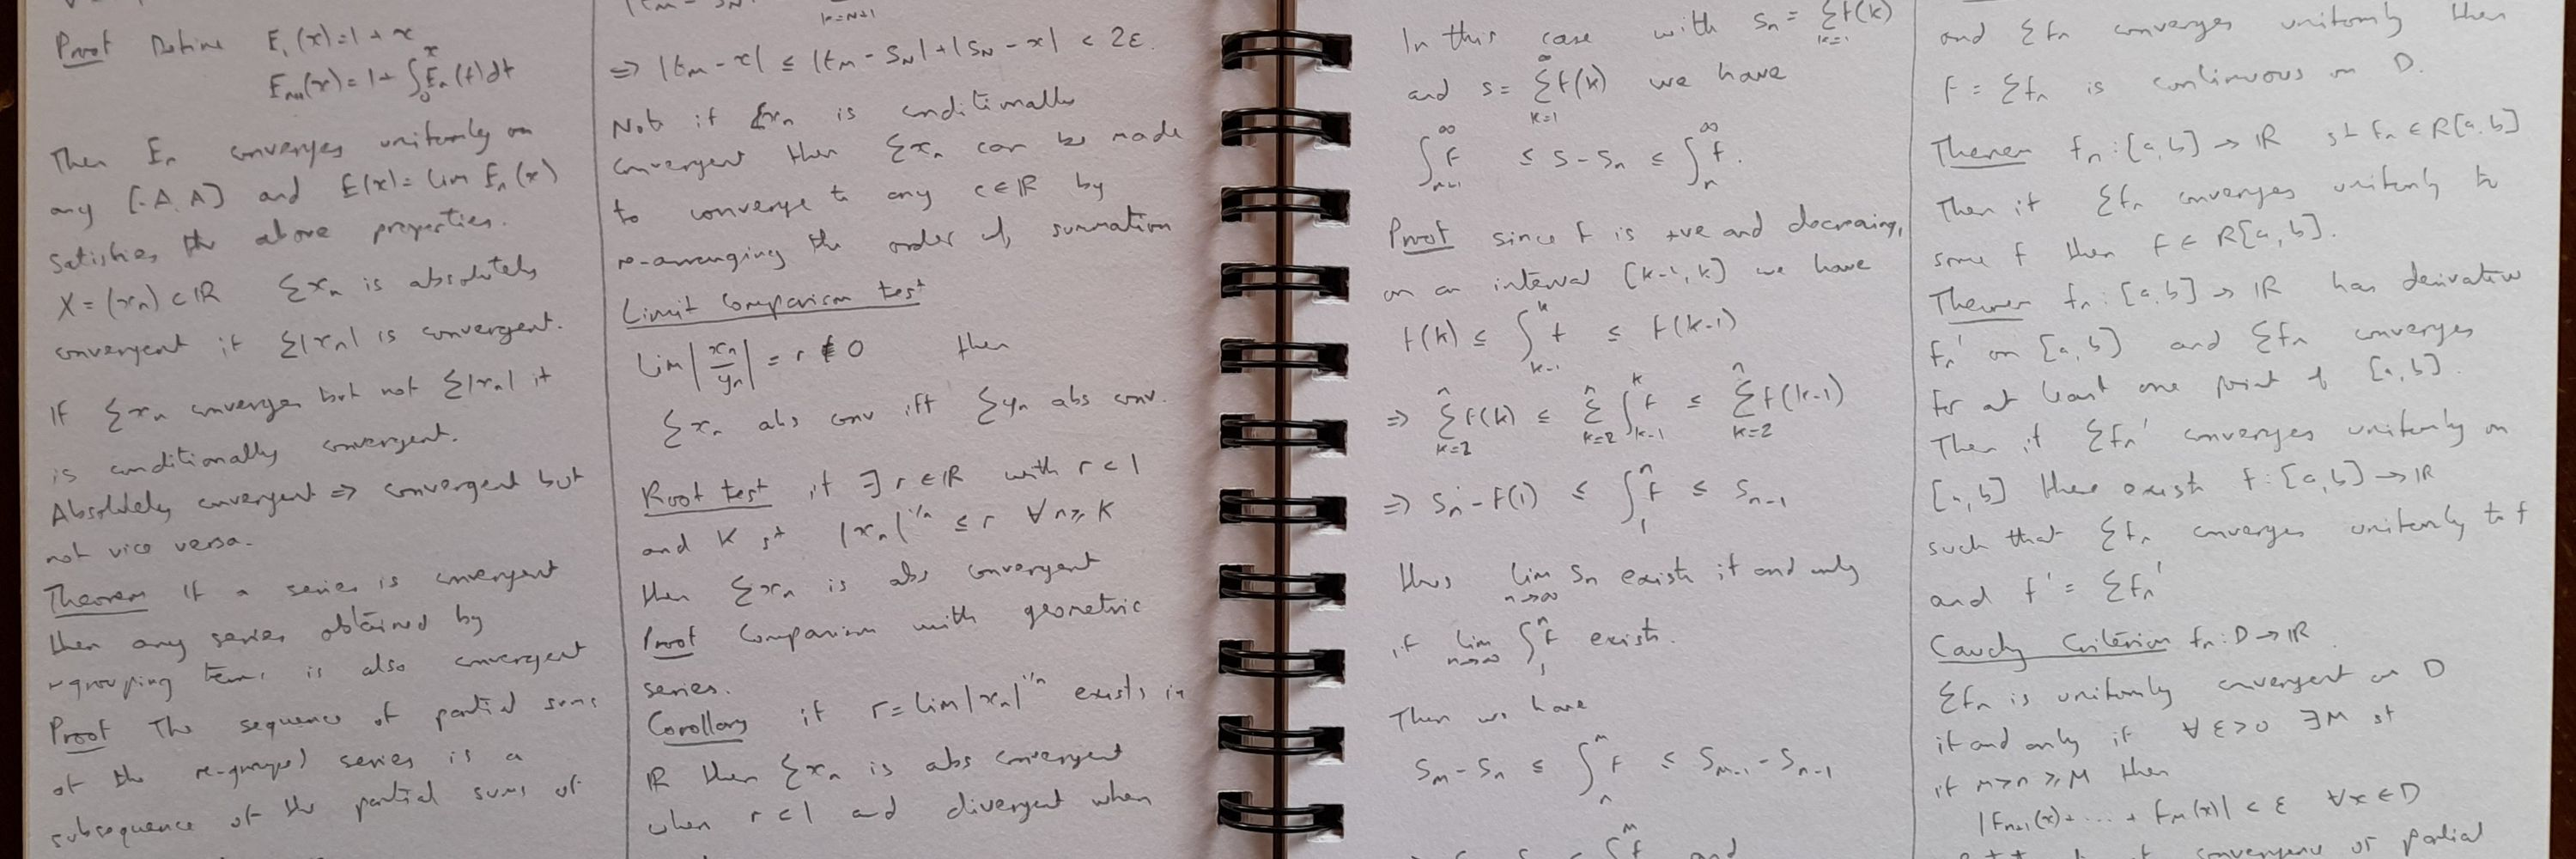 Proof Define E₁(x)=1+x
Eₙ₊₁(x)=1+∫₀ˣEₙ(t)dt
Then Eₙ converges uniformly on
any [-A,A] and E(x)=lim Eₙ(x)
satisfies the above properties.
X=(xₙ)⊂ℝ Σxₙ is absolutely
convergent if Σ|xₙ| is convergent.
If Σxₙ converges but not Σ|xₙ| it
is conditionally convergent.
Absolutely convergent ⇒ convergent but
not vice versa.
Theorem If a series is convergent
then any series obtained by
regrouping terms is also convergent
Proof The sequence of partial sums
of the re-grouped series is a
subsequence of the partial sums of
k=N+1
⇒ |tₘ-x| ≤ |tₘ-s_N|+|s_N-x| < 2ε.
Note if Σxₙ is conditionally
convergent then Σxₙ can be made
to converge to any c∈ℝ by
re-arranging the order of summation
Limit Comparison test
Lim|xₙ/yₙ|=r≠0 then
Σxₙ abs conv iff Σyₙ abs conv.
Root test if ∃r∈ℝ with r<1
and K st |xₙ|^{1/n} ≤ r ∀n≥K
then Σxₙ is abs convergent
Proof Comparison with geometric
series.
Corollary if r=Lim|xₙ|^{1/n} exists in
ℝ then Σxₙ is abs convergent
when r<1 and divergent when
In this case with sₙ=Σf(k)
and s=Σ_{k=1}^∞f(k) we have
∫_{n+1}^∞f ≤ s-sₙ ≤ ∫_n^∞f.
Proof since f is +ve and decreasing,
on an interval [k-1,k] we have
f(k) ≤ ∫_{k-1}^k f ≤ f(k-1)
⇒ Σ_{k=2}^n f(k) ≤ Σ_{k=2}^n ∫_{k-1}^k f ≤ Σ_{k=2}^n f(k-1)
⇒ sₙ-f(1) ≤ ∫_1^n f ≤ sₙ₋₁
thus lim_{n→∞} sₙ exists if and only
if lim_{n→∞} ∫_1^n f exists.
Then we have
sₘ-sₙ ≤ ∫_n^m f ≤ sₘ₋₁-sₙ₋₁
and
and Σfₙ converges uniformly then
f=Σfₙ is continuous on D.
Theorem fₙ:[a,b]→ℝ st fₙ∈R[a,b]
Then if Σfₙ converges uniformly to
some f then f∈R[a,b].
Theorem fₙ:[a,b]→ℝ has derivative
fₙ' on [a,b] and Σfₙ converges
for at least one point of [a,b].
Then if Σfₙ' converges uniformly on
[a,b] there exist f:[a,b]→ℝ
such that Σfₙ converges uniformly to f
and f'=Σfₙ'
Cauchy Criterion fₙ:D→ℝ
Σfₙ is uniformly convergent on D
if and only if ∀ε>0 ∃M st
if m>n≥M then
|fₙ₊₁(x)+...+fₘ(x)|<ε ∀x∈D
convergence of partial